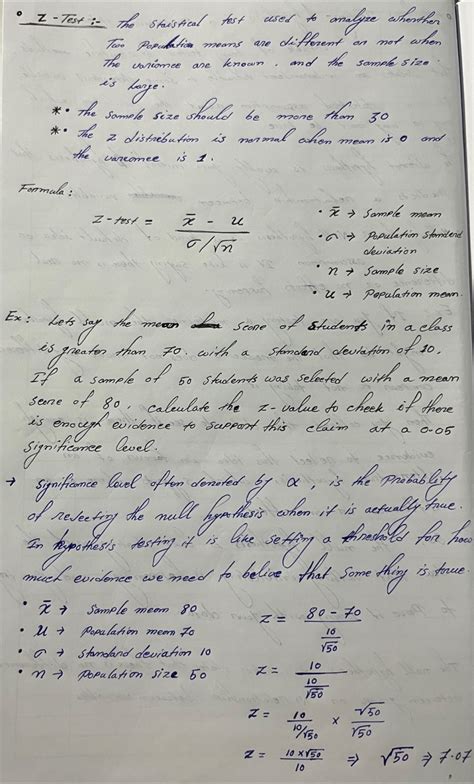 Z-Test :- The staistical test used to analyze wherther
Two Population means are different or not when
The varience are known. and the sample size
is Large.
* • The sample size should be more than 30
* • The z distribution is normal when mean is 0 and
the varience is 1.
Formula:
Z-test = x̄ - u / σ/√n
• x̄ → Sample mean
• σ → Population Standerd
deviation
• n → Sample size
• u → Population mean.
Ex: Lets say the mean score of students in a class
is greater than 70. with a standerd deviation of 10.
If a sample of 50 students was selected with a mean
score of 80, calculate the z-value to check if there
is enough evidence to support this claim at a 0.05
significance level.
→ Significance level often denoted by α, is the Probablity
of rejecting the null hypothesis when it is actually true.
In hypothesis testing it is like setting a threshold for how
much evidence we need to belive that some thing is true.
• x̄ → Sample mean 80
• u → Population mean 70
• σ → Standard deviation 10
• n → Population size 50
Z = 80 - 70 / 10/√50
Z = 10 / 10/√50
Z = 10 / 10/√50 × √50 / √50
Z = 10 × √50 / 10 ⇒ √50 ⇒ 7.07